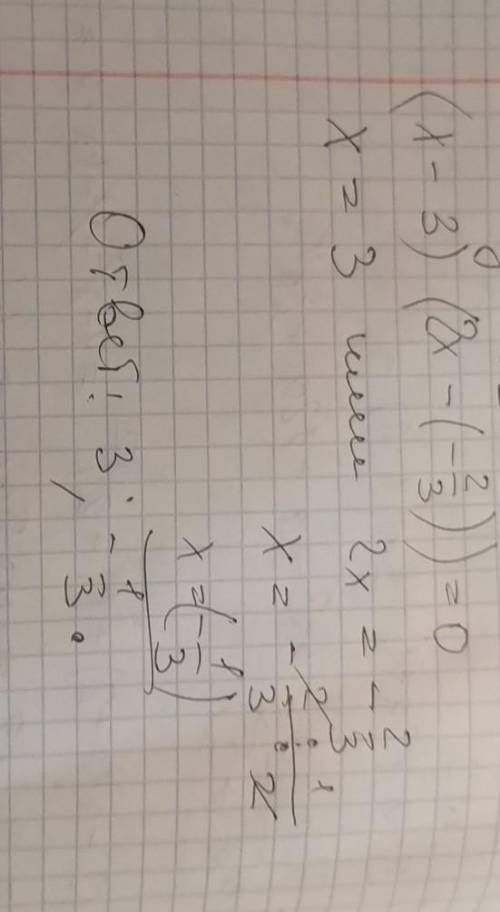 (x - 3) (2x - (- 2/3)) = 0
x = 3 или 2x = - 2/3
x = - 2/3 : 2
x = (- 1/3)
Ответ: 3; - 1/3.